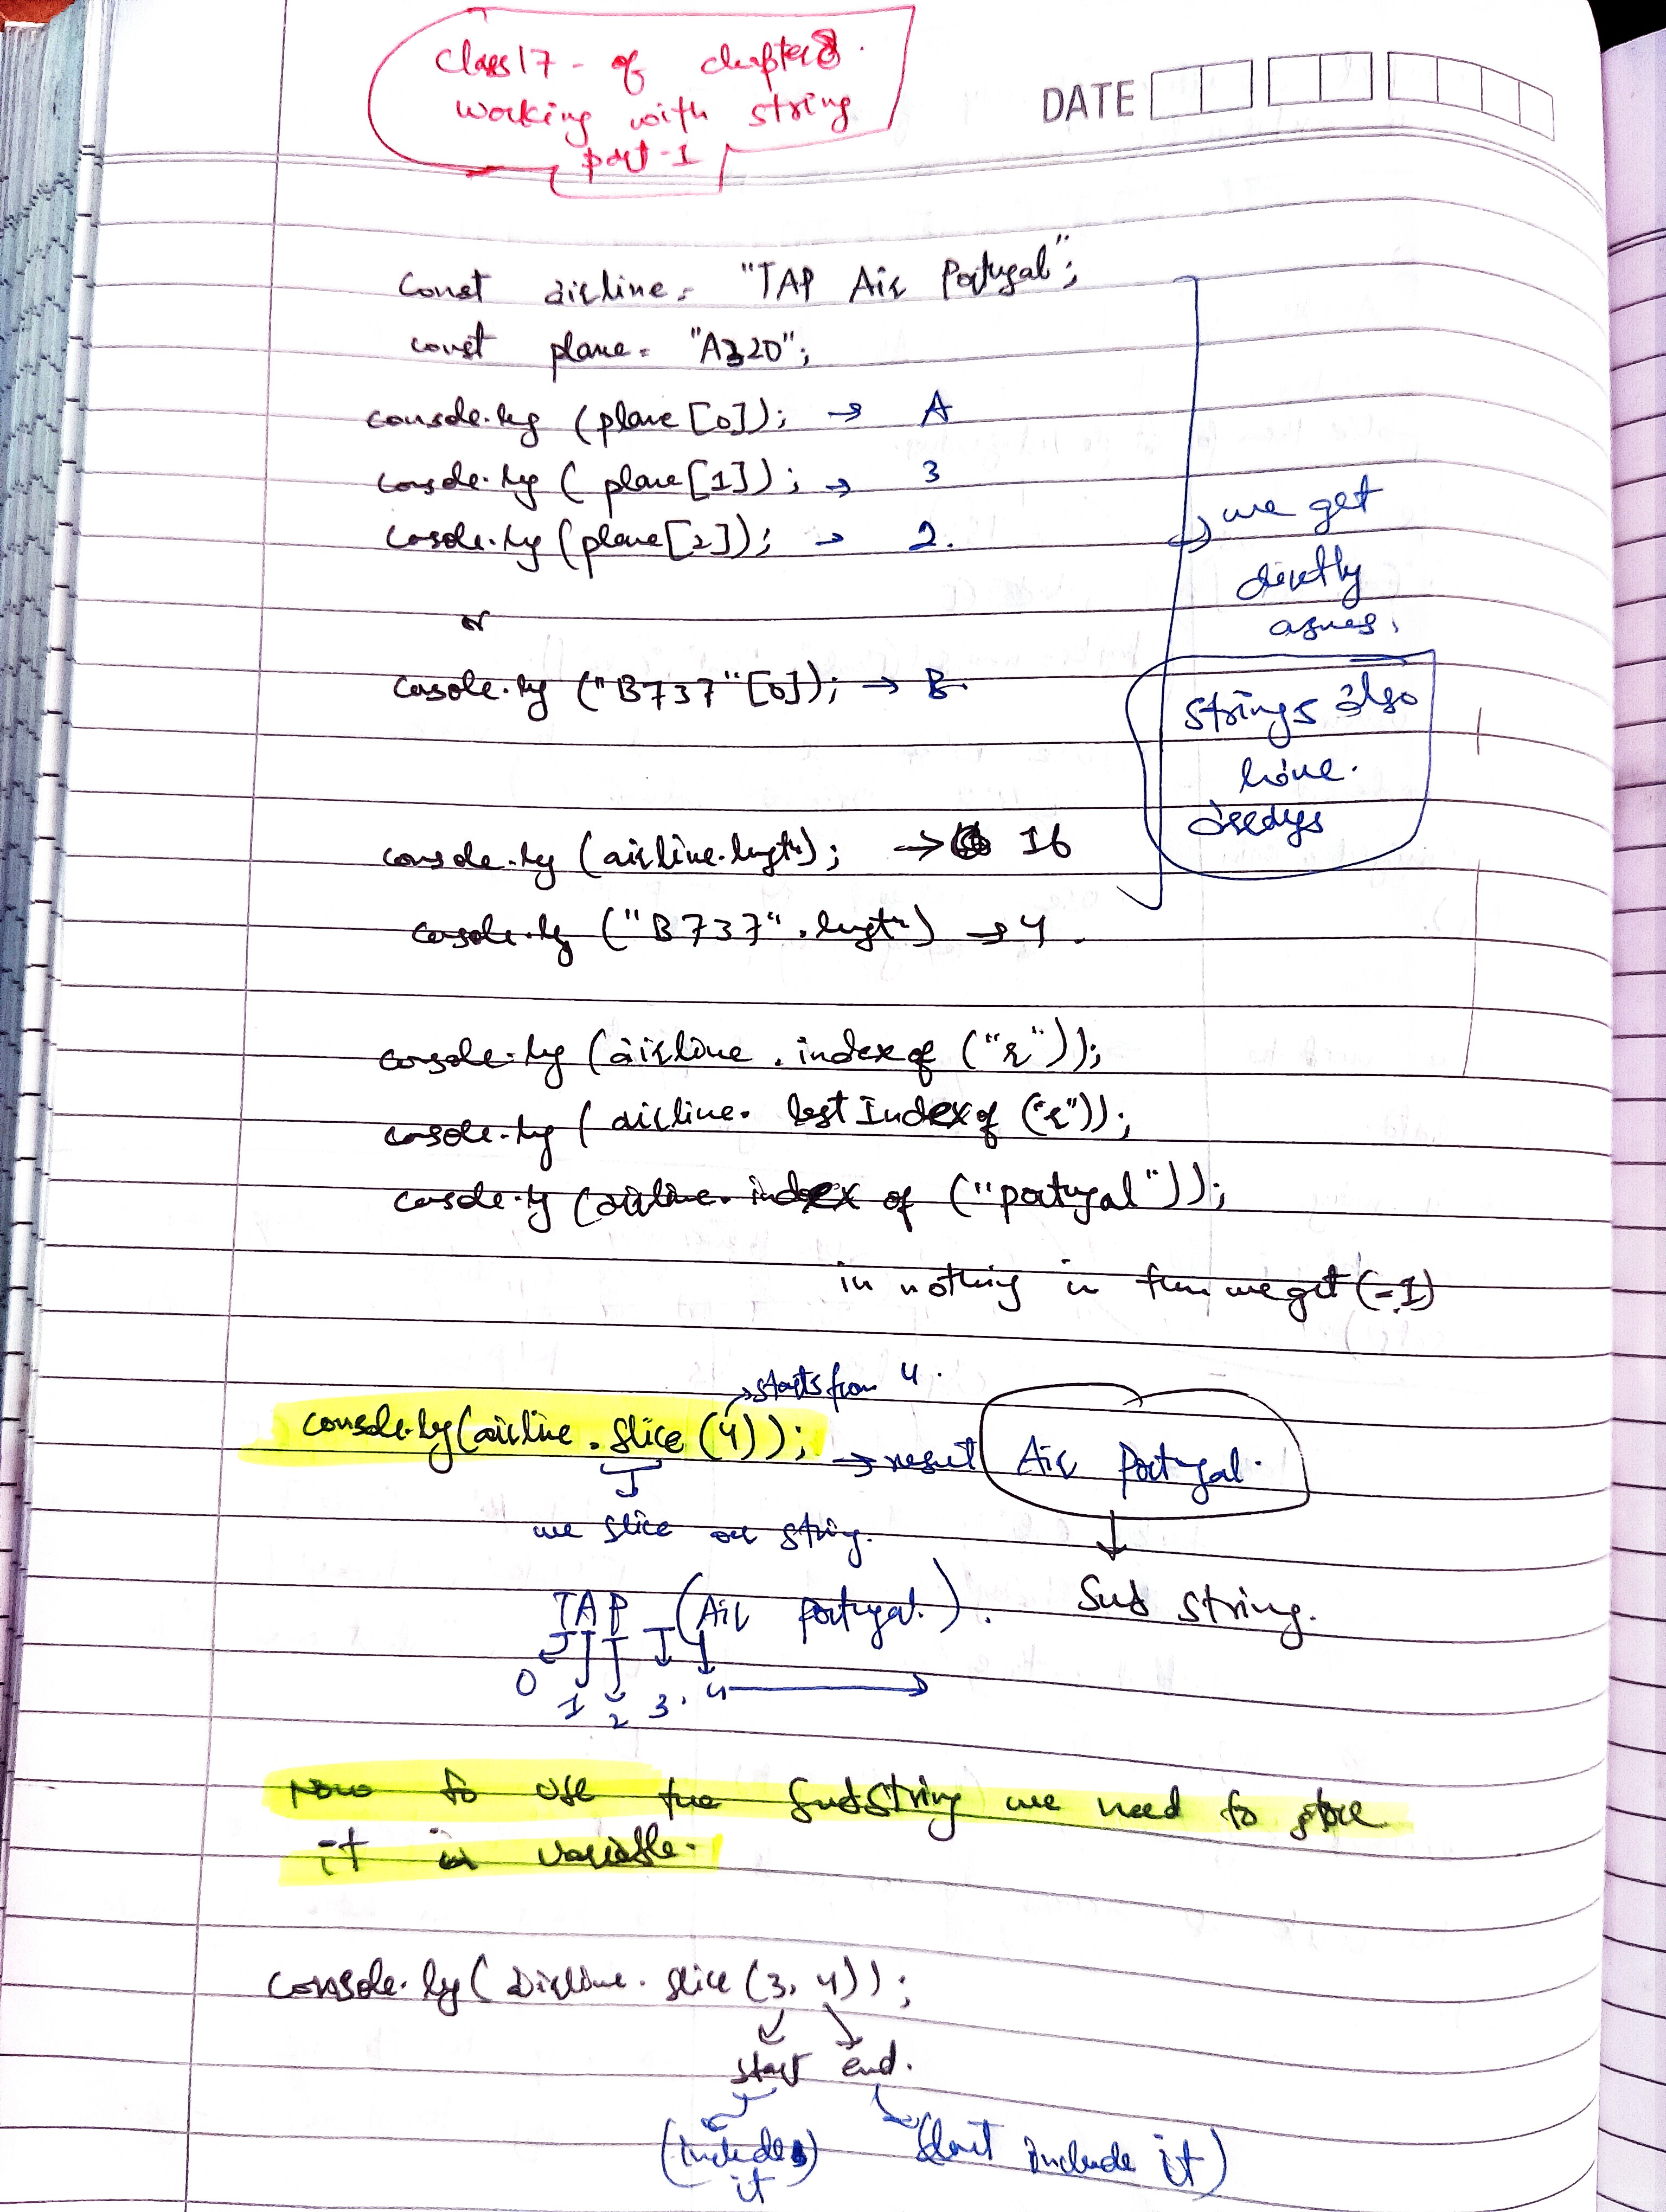 class 17 - of chapter 8.
working with string
part-1
DATE
const airline = "TAP Air Portugal";
const plane = "A320";
console.log (plane [0]); → A
console.log ( plane [1]); → 3
console.log (plane [2]); → 2.
→ we get
directly
or
console.log ("B737" [0]); → B.
strings also
have.
console.log (airline.length); → 16
console.log ("B737".length) → 4.
console.log (airline . indexof ("r"));
console.log ( airline. lastIndexof ("r"));
console.log (airline. index of ("portugal"));
in nothing in we get (-1)
→ starts from 4.
console.log(airline . slice (4)); → result Air Portugal.
we slice our string.
TAP (Air Portugal.). Sub string.
0 1 2 3. 4
now to use the substring we need to store
it in variable.
console.log ( airline. slice (3, 4));
start end.
(includes it) (don't include it)